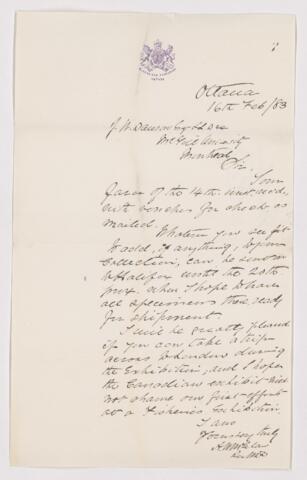 Ottawa
16th Feb/83
J. W. Dawson Esq LLD &c
McGill University
Montreal
Sir,
Your
favor of the 14th inst. recd,
with voucher for check, as
mailed.
Whatever you see fit
to add, if anything, to your
collection, can be sent on
to Halifax until the 20th
prox. when I hope to have
all specimens there ready
for shipment.
I will be greatly pleased
if you can take a trip
across to London during
the Exhibition, and I hope
the Canadian exhibit will
not shame our first effort
at a Fisheries Exhibition.
I am
Yours very truly